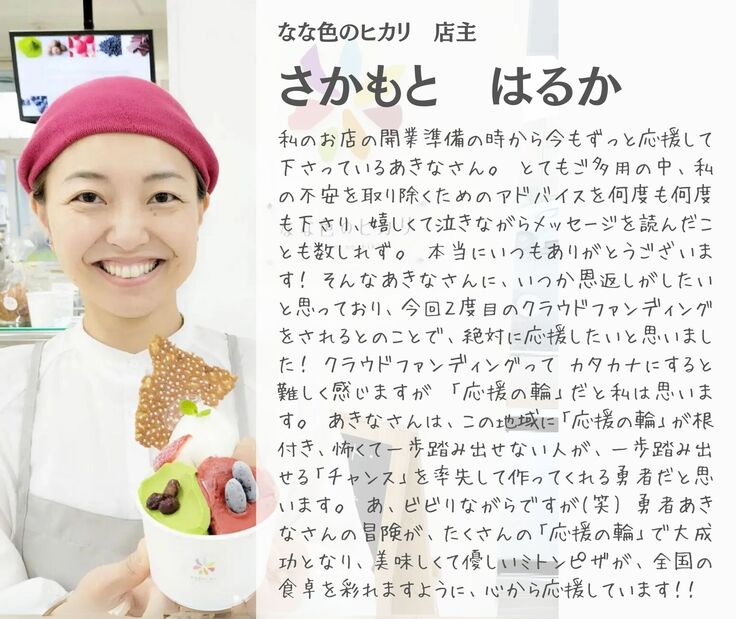 なな色のヒカリ　店主
さかもと　はるか
私のお店の開業準備の時から今もずっと応援して
下さっているあきなさん。 とてもご多用の中、私
の不安を取り除くためのアドバイスを何度も何度
も下さり、嬉しくて泣きながらメッセージを読んだこ
とも数しれず。 本当にいつもありがとうございま
す! そんなあきなさんに、いつか恩返しがしたい
と思っており、今回2度目のクラウドファンディング
をされるとのことで、絶対に応援したいと思いまし
た! クラウドファンディングって カタカナにすると
難しく感じますが 「応援の輪」だと私は思いま
す。 あきなさんは、この地域に「応援の輪」が根
付き、怖くて一歩踏み出せない人が、一歩踏み出
せる「チャンス」を率先して作ってくれる勇者だと思
います。 あ、ビビりながらですが(笑) 勇者あき
なさんの冒険が、たくさんの「応援の輪」で大成
功となり、美味しくて優しいミトンピザが、全国の
食卓を彩れますように、心から応援しています!!
なな色のヒカリ